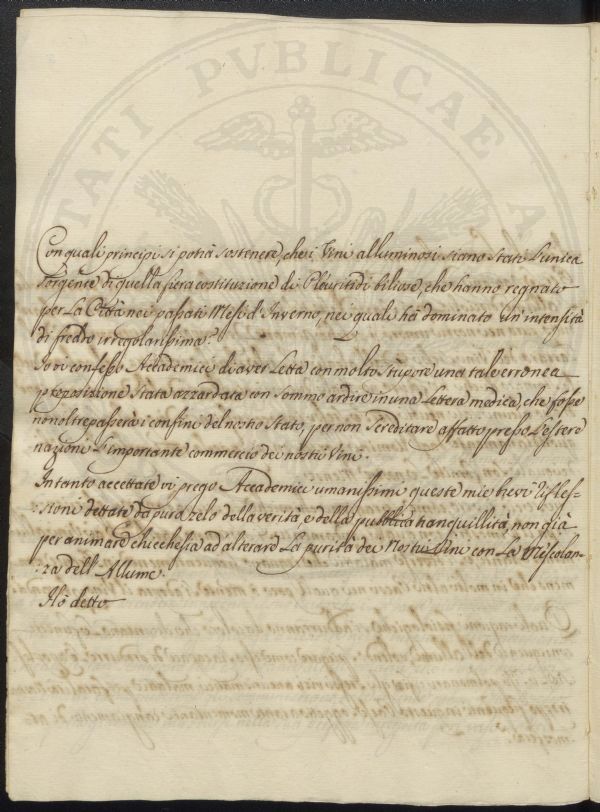 TATI PVBLICAE
Con quali principi si potrà sostenere, che i Vini alluminosi siano stati l'unica
sorgente di quella fiera costituzione di Pleuritidi biliose, che hanno regnato
per La Città nei passati Mesi d'Inverno, nei quali hà dominato un'intensità
di freddo irregolarissima?
Io vi confesso Accademici di aver Letta con molto stupore una tale erronea
proposizione stata azzardata con sommo ardire in una Lettera medica, che forse
non oltrepasserà i confini del nostro Stato, per non screditare affatto presso l'estere
nazioni l'importante commercio dei nostri Vini.
Intanto accettate vi prego Accademici umanissimi queste mie brevi rifles-
:sioni dettate da puro zelo della verità, e della pubblica tranquillità, non già
per animare chicchesia ad alterare La purità dei Nostri Vini con La Mescolan-
:za dell'Allume.
Hò detto